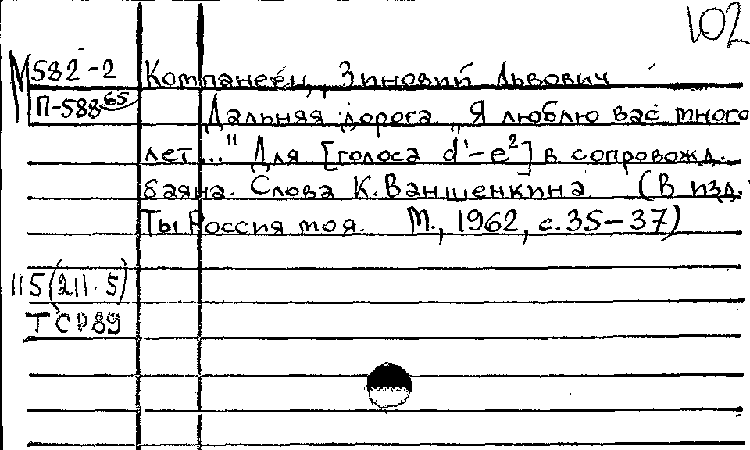 102
М 582-2
Компанеец, Зиновий Львович
П-588 65
Дальняя дорога „Я люблю вас много
лет..." Для [голоса d¹-e²] в сопровожд.
баяна. Слова К. Ваншенкина (В изд.
Ты Россия моя М., 1962, с. 35-37)
115(211.5)